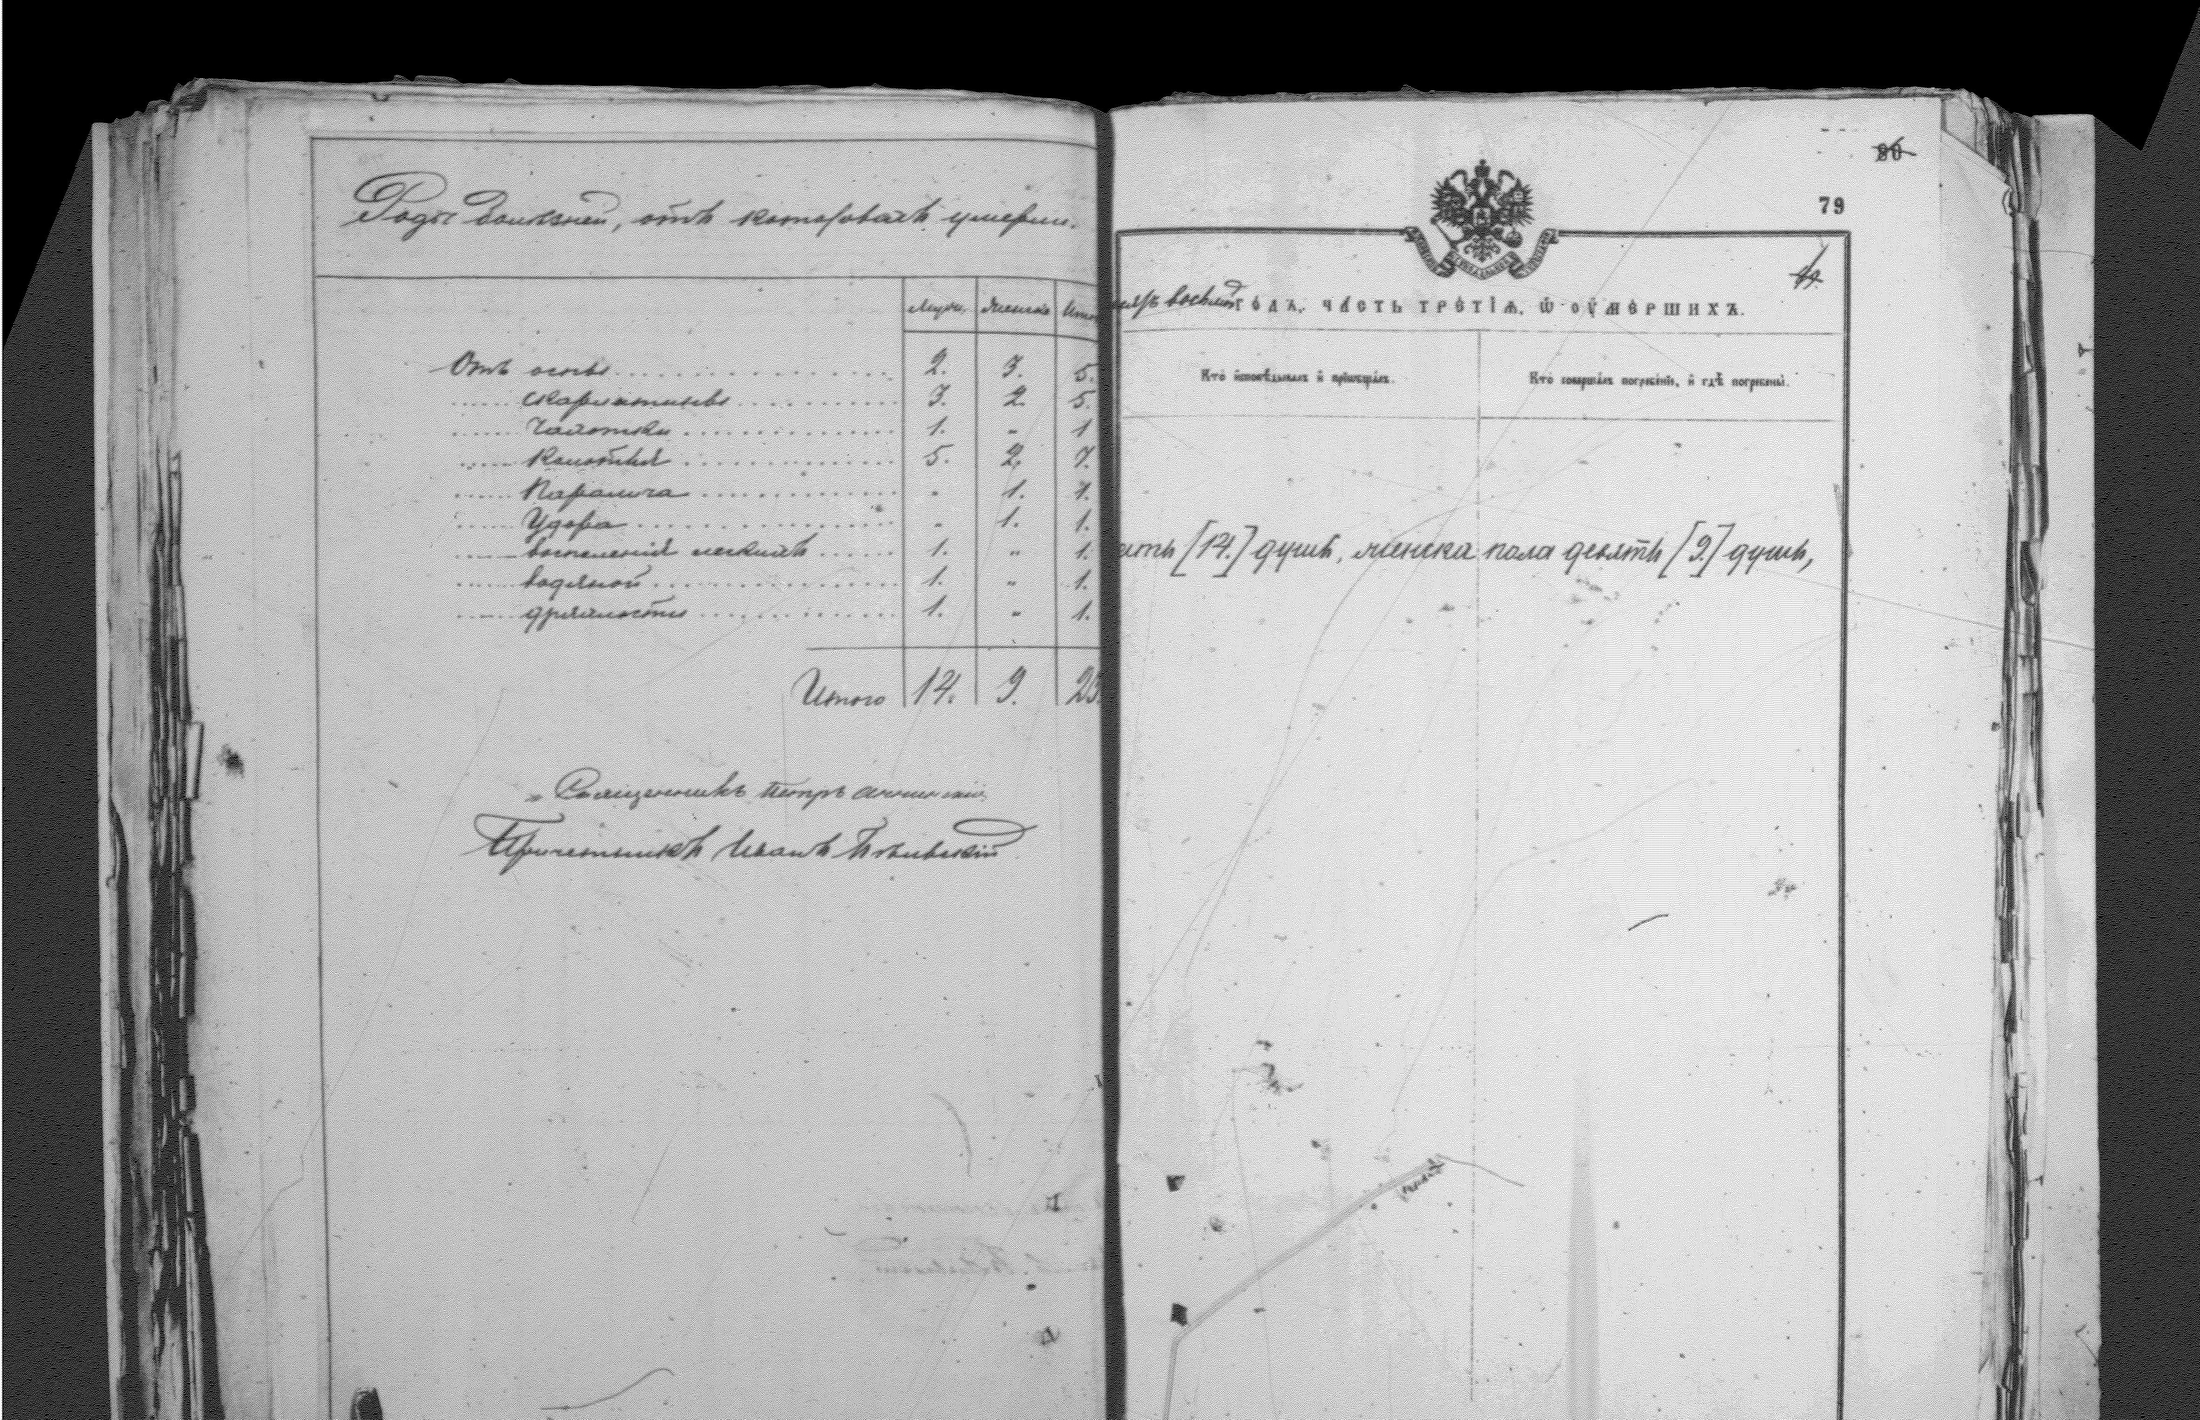 Роды болѣзней, отъ которовахъ умерли.
Мужч. Женска Итог
Отъ оспы 2. 3. 5.
скарлатины 3. 2. 5.
Чахотки 1. „ 1
Колотья 5. 2. 7.
Паралича „ 1. 1.
Удара „ 1. 1.
воспаленія легкихъ 1. „ 1.
водяной 1. „ 1.
дряхлости 1. „ 1.
Итого 14. 9. 23.
Священникъ Петръ
Причетникъ Иванъ
80
79
ГО́ДА, ЧА́СТЬ ТРЕ́ТІѦ, Ѿ ОУ҆МЕ́РШИХЪ.
Кто и҆сповѣ́дывалъ и҆ прїѡбща́лъ.
Кто̀ соверша́лъ погребе́нїе, и҆ гдѣ̀ погребены̀.
[14.] душъ, женска пола девять [9.] душъ,